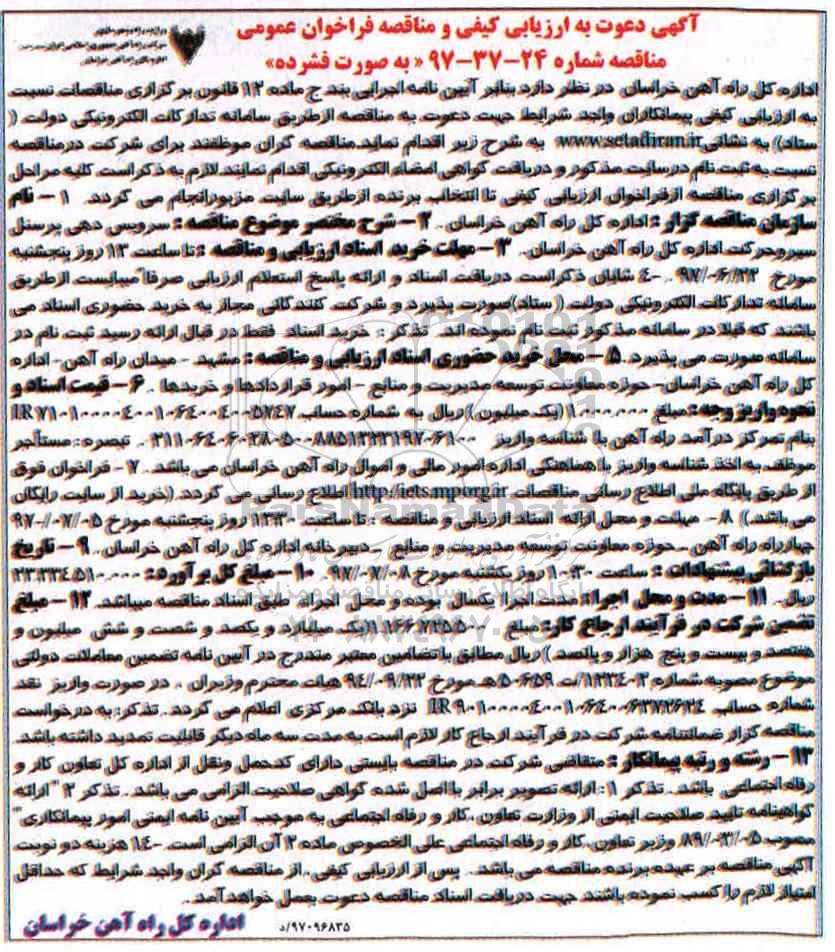 آگهی دعوت به ارزیابی کیفی و مناقصه فراخوان عمومی
مناقصه شماره ۲۴-۳۷-۹۷ « به صورت فشرده»
اداره کل راه آهن خراسان در نظر دارد بنابر آیین نامه اجرایی بند ج ماده ۱۲ قانون برگزاری مناقصات نسبت
به ارزیابی کیفی پیمانکاران واجد شرایط جهت دعوت به مناقصه ازطریق سامانه تدارکات الکترونیکی دولت (
ستاد) به نشانی www.setadiran.ir به شرح زیر اقدام نماید.مناقصه گران موظفند برای شرکت درمناقصه
نسبت به ثبت نام درسایت مذکور و دریافت گواهی امضاء الکترونیکی اقدام نمایند.لازم به ذکراست کلیه مراحل
برگزاری مناقصه ازفراخوان ارزیابی کیفی تا انتخاب برنده ازطریق سایت مزبورانجام می گردد. ۱- نام
سازمان مناقصه گزار : اداره کل راه آهن خراسان . ۲- شرح مختصر موضوع مناقصه : سرویس دهی پرسنل
سیروحرکت اداره کل راه آهن خراسان. ۳- مهلت خرید اسناد ارزیابی و مناقصه : تا ساعت ۱۳ روز پنجشنبه
مورخ ۹۷/۰۶/۲۲ . ۴- شایان ذکراست دریافت اسناد و ارائه پاسخ استعلام ارزیابی صرفا میبایست ازطریق
سامانه تدارکات الکترونیکی دولت ( ستاد)صورت پذیرد و شرکت کنندگانی مجاز به خرید حضوری اسناد می
باشند که قبلا در سامانه مذکور ثبت نام نموده اند. تذکر : خرید اسناد فقط در قبال ارائه رسید ثبت نام در
سامانه صورت می پذیرد. ۵- محل خرید حضوری اسناد ارزیابی و مناقصه : مشهد - میدان راه آهن- اداره
کل راه آهن خراسان-حوزه معاونت توسعه مدیریت و منابع - امور قراردادها و خریدها . ۶- قیمت اسناد و
نحوه واریز وجه : مبلغ ۱.۰۰۰.۰۰۰ (یک میلیون) ریال به شماره حساب
بنام تمرکز درآمد راه آهن با شناسه واریز . تبصره : مستأجر
موظف به اخذ شناسه واریز با هماهنگی اداره امور مالی و اموال راه آهن خراسان می باشد. ۷- فراخوان فوق
از طریق پایگاه ملی اطلاع رسانی مناقصات http://iets.mporg.ir اطلاع رسانی می گردد. (خرید از سایت رایگان
می باشد.) ۸- مهلت و محل ارائه اسناد ارزیابی و مناقصه : تا ساعت ۱۲:۳۰ روز پنجشنبه مورخ ۹۷/۰۷/۰۵
چهارراه راه آهن - حوزه معاونت توسعه مدیریت و منابع - دبیرخانه اداره کل راه آهن خراسان. ۹- تاریخ
بازگشائی پیشنهادات : ساعت ۱۰:۳۰ روز یکشنبه مورخ ۹۷/۰۷/۰۸. ۱۰- مبلغ کل برآورد :
ریال. ۱۱- مدت و محل اجرا: مدت اجرا یکسال بوده و محل اجراء طبق اسناد مناقصه میباشد. ۱۲- مبلغ
تضمین شرکت در فرآیند ارجاع کار: مبلغ (یک میلیارد و یکصد و شصت و شش میلیون و
هفتصد و بیست و پنج هزار و پانصد ) ریال مطابق با تضامین معتبر مندرج در آیین نامه تضمین معاملات دولتی
موضوع مصوبه شماره ۱۲۳۴۰۲/ت ۵۰۶۵۹هـ مورخ ۹۴/۰۹/۲۲ هیات محترم وزیران ، در صورت واریز نقد
شماره حساب نزد بانک مرکزی اعلام می گردد. تذکر: به درخواست
مناقصه گزار ضمانتنامه شرکت در فرآیند ارجاع کار لازم است به مدت سه ماه دیگر قابلیت تمدید داشته باشد.
۱۳- رشته و رتبه پیمانکار : متقاضی شرکت در مناقصه بایستی دارای کدحمل ونقل از اداره کل تعاون کار و
رفاه اجتماعی باشد. تذکر ۱: ارائه تصویر برابر بااصل شده گواهی صلاحیت الزامی می باشد. تذکر ۲ "ارائه
گواهینامه تایید صلاحیت ایمنی از وزارت تعاون ،کار و رفاه اجتماعی به موجب آیین نامه ایمنی امور پیمانکاری"
مصوب ۸۹/۰۳/۰۵ وزیر تعاون،کار و رفاه اجتماعی علی الخصوص ماده ۲ آن الزامی است. ۱۴- هزینه دو نوبت
آگهی مناقصه بر عهده برنده مناقصه می باشد. پس از ارزیابی کیفی، از مناقصه گران واجد شرایط که حداقل
امتیاز لازم را کسب نموده باشند جهت دریافت اسناد مناقصه دعوت بعمل خواهدآمد.
اداره کل راه آهن خراسان
۹۷۰۹۶۸۳۵/د
ParsNamadData